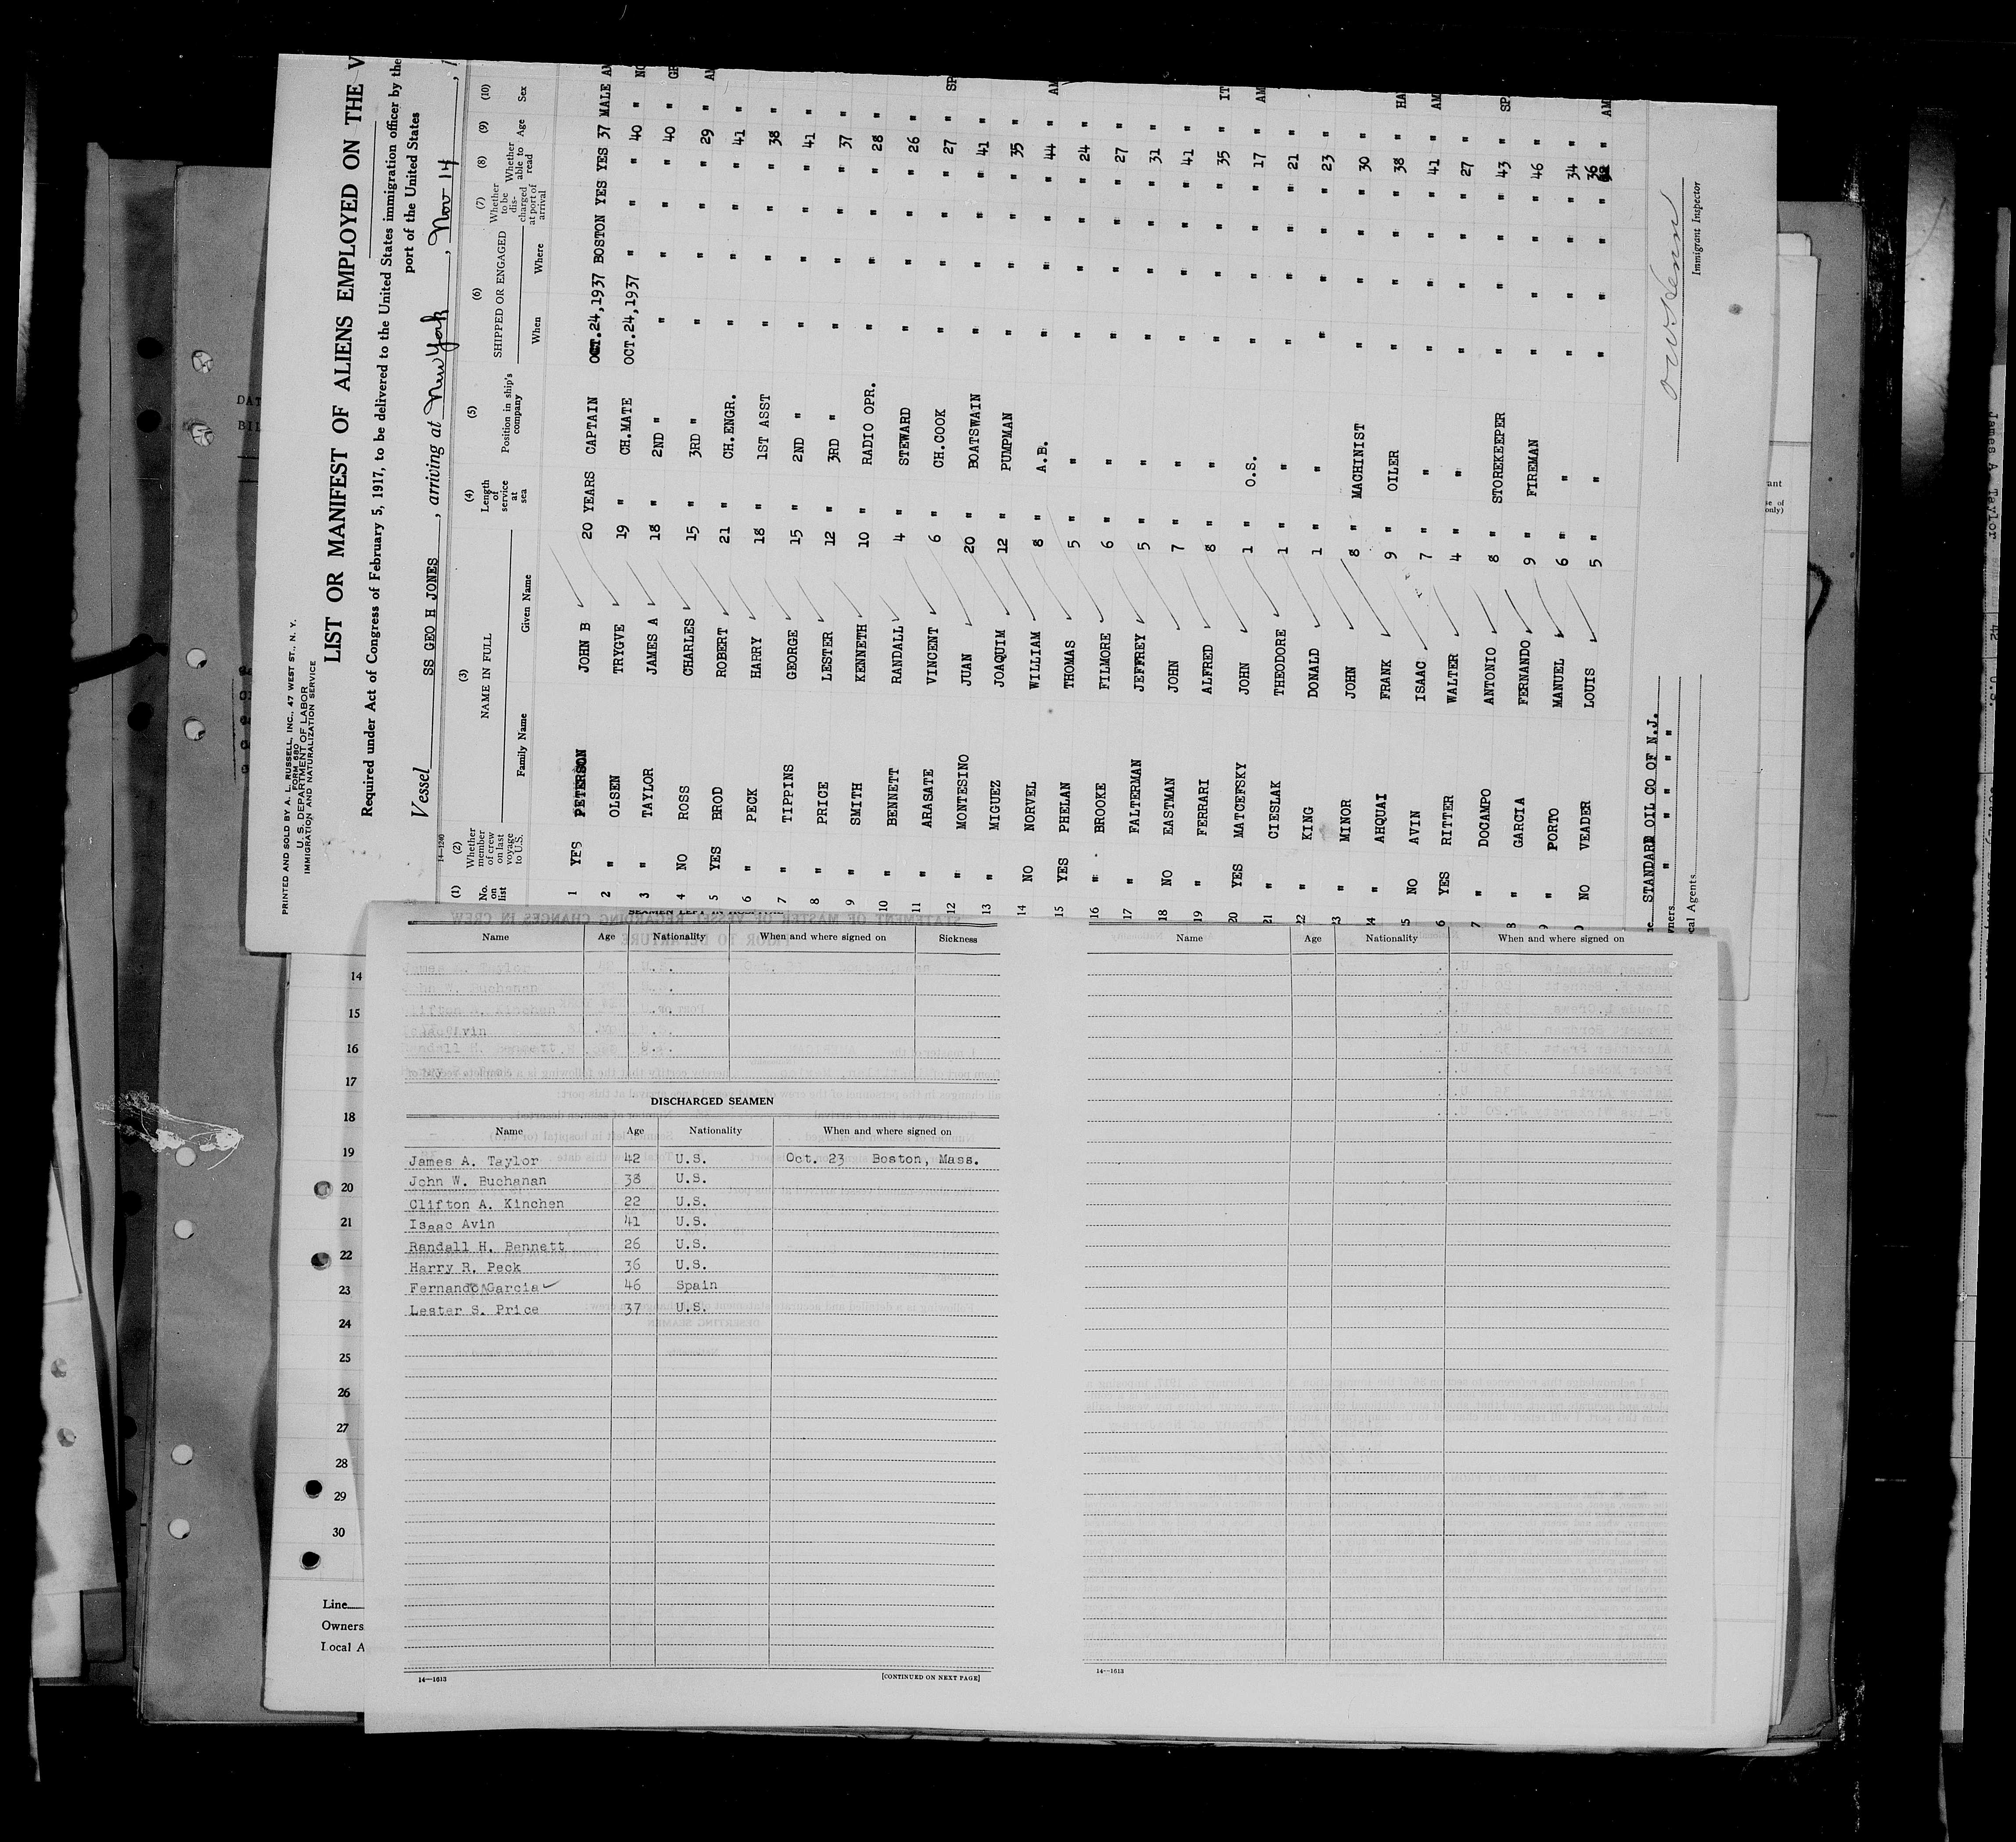 PRINTED AND SOLD BY A. L. RUSSELL, INC., 47 WEST ST., N. Y.
FORM 680
U. S. DEPARTMENT OF LABOR
IMMIGRATION AND NATURALIZATION SERVICE
LIST OR MANIFEST OF ALIENS EMPLOYED ON THE V
Required under Act of Congress of February 5, 1917, to be delivered to the United States immigration officer by the
port of the United States
Vessel SS GEO H JONES, arriving at New York, Nov 14, 1
14-1240
(1) (2) (3) (4) (5) (6) (7) (8) (9) (10)
No. on list Whether member of crew on last voyage to U.S. NAME IN FULL Length of service at sea Position in ship's company SHIPPED OR ENGAGED Whether to be discharged at port of arrival Whether able to read Age Sex
Family Name Given Name When Where
1 YES PETERSON JOHN B 20 YEARS CAPTAIN OCT.24,1937 BOSTON YES YES 37 MALE AM
2 " OLSEN TRYGVE 19 " CH.MATE OCT.24,1937 " " " 40 " NO
3 " TAYLOR JAMES A 18 " 2ND " " " " " 40 " GE
4 NO ROSS CHARLES 15 " 3RD " " " " " 29 " AM
5 YES BROD ROBERT 21 " CH.ENGR. " " " " 41 "
6 " PECK HARRY 18 " 1ST ASST " " " " 38 "
7 " TIPPINS GEORGE 15 " 2ND " " " " " 41 "
8 " PRICE LESTER 12 " 3RD " " " " " 37 "
9 " SMITH KENNETH 10 " RADIO OPR. " " " " 28 "
10 " BENNETT RANDALL 4 " STEWARD " " " " 26 "
11 " ARASATE VINCENT 6 " CH.COOK " " " " 27 " SP
12 " MONTESINO JUAN 20 " BOATSWAIN " " " " 41 "
13 " MIGUEZ JOAQUIM 12 " PUMPMAN " " " " 35 "
14 NO NORVEL WILLIAM 8 " A.B. " " " " 44 " AM
15 YES PHELAN THOMAS 5 " " " " " " 24 "
16 " BROOKE FILMORE 6 " " " " " " 27 "
17 " FALTERMAN JEFFREY 5 " " " " " " 31 "
18 NO EASTMAN JOHN 7 " " " " " " 41 "
19 " FERRARI ALFRED 8 " " " " " " 35 " IT
20 YES MATCEFSKY JOHN 1 " O.S. " " " " 17 " AM
21 " CIESLAK THEODORE 1 " " " " " " 21 "
22 " KING DONALD 1 " " " " " " 23 "
3 " MINOR JOHN 8 " MACHINIST " " " " 30 "
4 " AHQUAI FRANK 9 " OILER " " " " 38 " HA
5 NO AVIN ISAAC 7 " " " " " " 41 " AM
6 YES RITTER WALTER 4 " " " " " " 27 "
7 " DOCAMPO ANTONIO 8 " STOREKEEPER " " " " 43 " SP
8 " GARCIA FERNANDO 9 " FIREMAN " " " " 46 "
9 " PORTO MANUEL 6 " " " " " " 34 "
0 NO VEADER LOUIS 5 " " " " " " 36 " AM
ne STANDARD OIL CO OF N.J.
wners " " " " "
cal Agents
Immigrant Inspector
SEAMEN LEFT IN HOSPITAL
Name Age Nationality When and where signed on Sickness
Name Age Nationality When and where signed on
14
15
16
17
18
19
20
21
22
23
24
25
26
27
28
29
30
Line
Owners
Local A
DISCHARGED SEAMEN
Name Age Nationality When and where signed on
James A. Taylor 42 U.S. Oct. 23 Boston, Mass.
John W. Buchanan 38 U.S.
Clifton A. Kinchen 22 U.S.
Isaac Avin 41 U.S.
Randall H. Bennett 26 U.S.
Harry R. Peck 36 U.S.
Fernando Garcia 46 Spain
Lester S. Price 37 U.S.
14—1613
[CONTINUED ON NEXT PAGE]
14—1613
DAT
BIL
James A. Taylor 42 U.S.